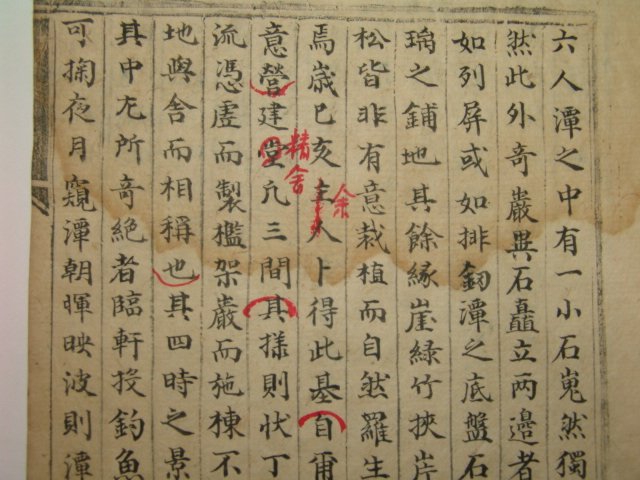 六人潭之中有一小石嵬然獨
然此外奇巖異石矗立两邉者
如列屏或如排釰潭之底盤石
瑀之鋪地其餘緣崖綠竹挾岸
松皆非有意栽植而自然羅生
焉歲巳亥主人卜得此基自甫
余
意營建堂凡三間其㨾則状丁
精舍
流憑虗而製檻架巖而施棟不
地與舍而相稱也其四時之景
其中尤所奇絶者臨軒投釣魚
可掬夜月窺潭朝暉映波則潭